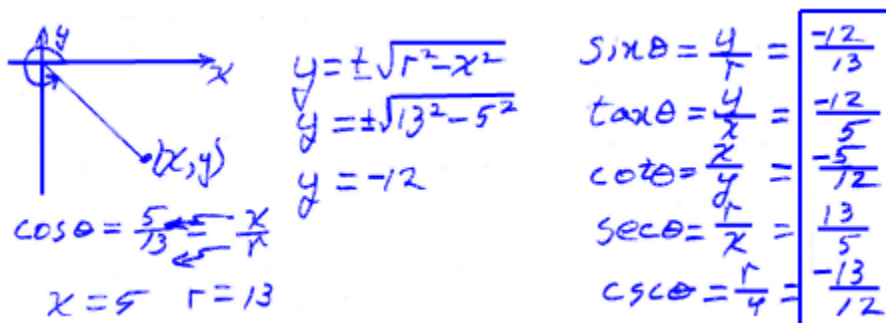 y
x
(x, y)
cosθ = 5/13 = x/r
x = 5 r = 13
y = ±√(r² - x²)
y = ±√(13² - 5²)
y = -12
sinθ = y/r = -12/13
tanθ = y/x = -12/5
cotθ = x/y = -5/12
secθ = r/x = 13/5
cscθ = r/y = -13/12